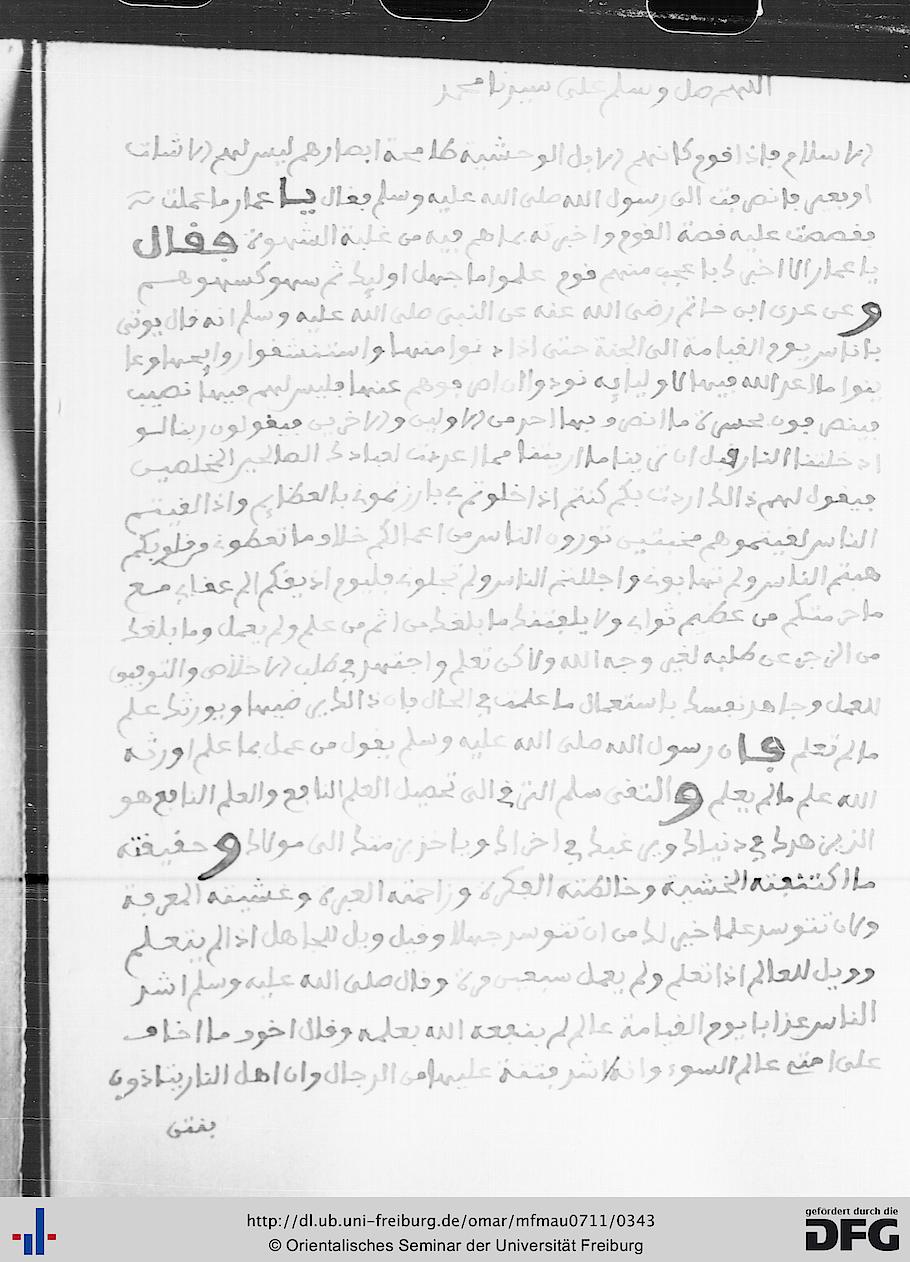 اللهم صل وسلم على سيدنا محمد
الاسلام فإذا قوم كانهم الابل الوحشية طامحة ابصارهم ليس لهم الا شات
او بعير فانصرفت الى رسول الله صلى الله عليه وسلم فقال يا عمار ما عملت
فقصصت عليه قصة القوم واخبرته بما هم فيه من غلبة الشهوة فقال
يا عمار الا اخبرك باعجب منهم قوم علموا ما جهل اوليك ثم سهو كسهوهم
وعن عدى ابن حاتم رضى الله عنه عن النبي صلى الله عليه وسلم انه قال يوتى
باناس يوم القيامة الى الجنة حتى اذا دنوا منها واستنشفوا روايحها وعا
ينوا ما اعد الله فيها لاوليايه نودوا ان اصرفوهم عنها فليس لهم فيها نصيب
فينصرفون بحسرة ما انصرف بها احد من الاولين والاخرين فيقولون ربنا لو
ادخلتنا النار قبل ان ترينا ما اريتنا مما اعددت لعبادك الصالحين المخلصين
فيقول لهم ذالك اردت بكم كنتم اذا خلوتم بارزتموني بالعظايم واذا لقيتم
الناس لقيتموهم مخبتين تورون الناس من اعمالكم خلاف ما تعطون من قلوبكم
هبتم الناس ولم تهابون واجللتم الناس ولم تجلون فاليوم اذيقكم اليم عقابي مع
ما حرمتكم من عظيم ثوابي ولا يلفتنك ما بلغك من اثم من علم ولم يعمل وما بلغك
من الزجر عن طلبه لغير وجه الله ولاكن تعلم واجتهد في طلب الاخلاص والتوفيق
للعمل وجاهد نفسك باستعمال ما علمت في الحال فان ذالك يرضيها ويورثك علم
ما لم تعلم فان رسول الله صلى الله عليه وسلم يقول من عمل بما علم اورثه
الله علم ما لم يعلم والتقى سلم الترقي الى تحصيل العلم النافع والعلم النافع هو
الذي يزهدك في دنياك ويرغبك في اخراك وياخذ بيدك الى مولاك وحقيقته
ما اكتنفته الخشية وخالطته الفكرة وزاحمته العبرة وغشيته المعرفة
ولان تتوسد علما خير لك من ان تتوسد جهلا وقيل ويل للجاهل اذا لم يتعلم
وويل للعالم اذا تعلم ولم يعمل سبعين مرة وقال صلى الله عليه وسلم اشد
الناس عذابا يوم القيامة عالم لم ينفعه الله بعلمه وقال اخوف ما اخاف
على امتي عالم السوء وانه اشد فتنة عليها من الرجال وان اهل النار يتاذون
http://dl.ub.uni-freiburg.de/omar/mfmau0711/0343
© Orientalisches Seminar der Universität Freiburg
gefördert durch die
DFG